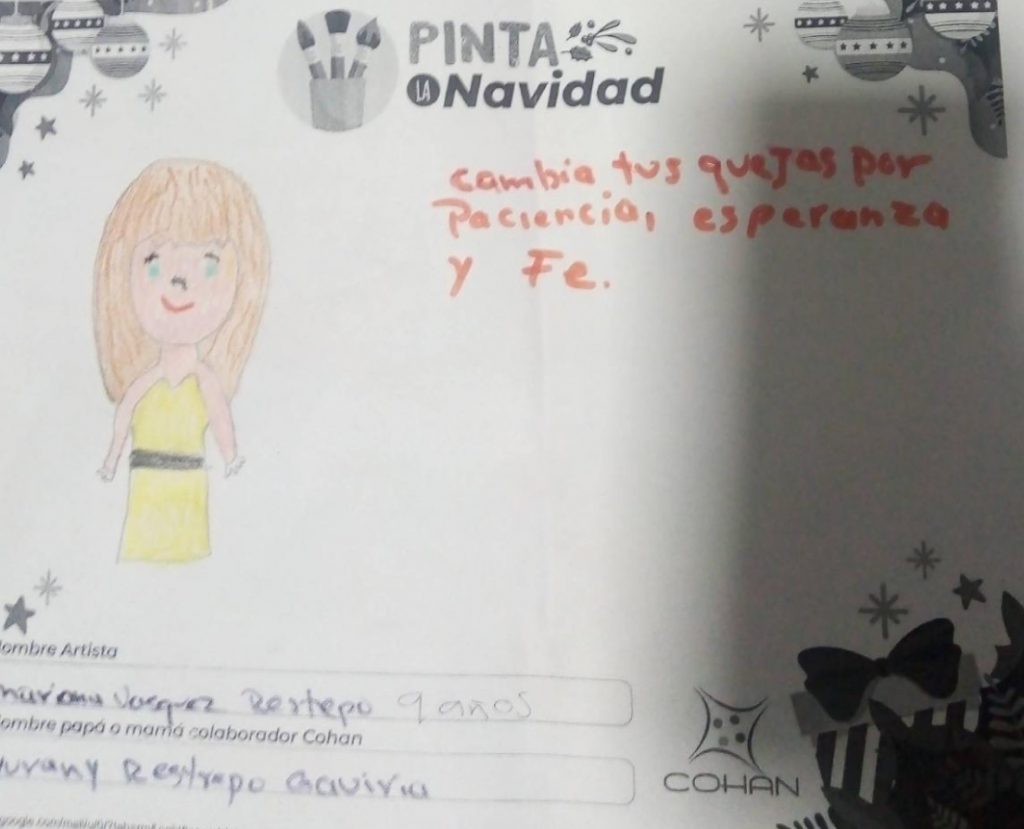 PINTA
LA Navidad
cambia tus quejas por
Paciencia, esperanza
y Fe.
ombre Artista
mariana Vasquez Restepo 9 años
ombre papá o mamá colaborador Cohan
urany Restrepo Gaviria
COHAN